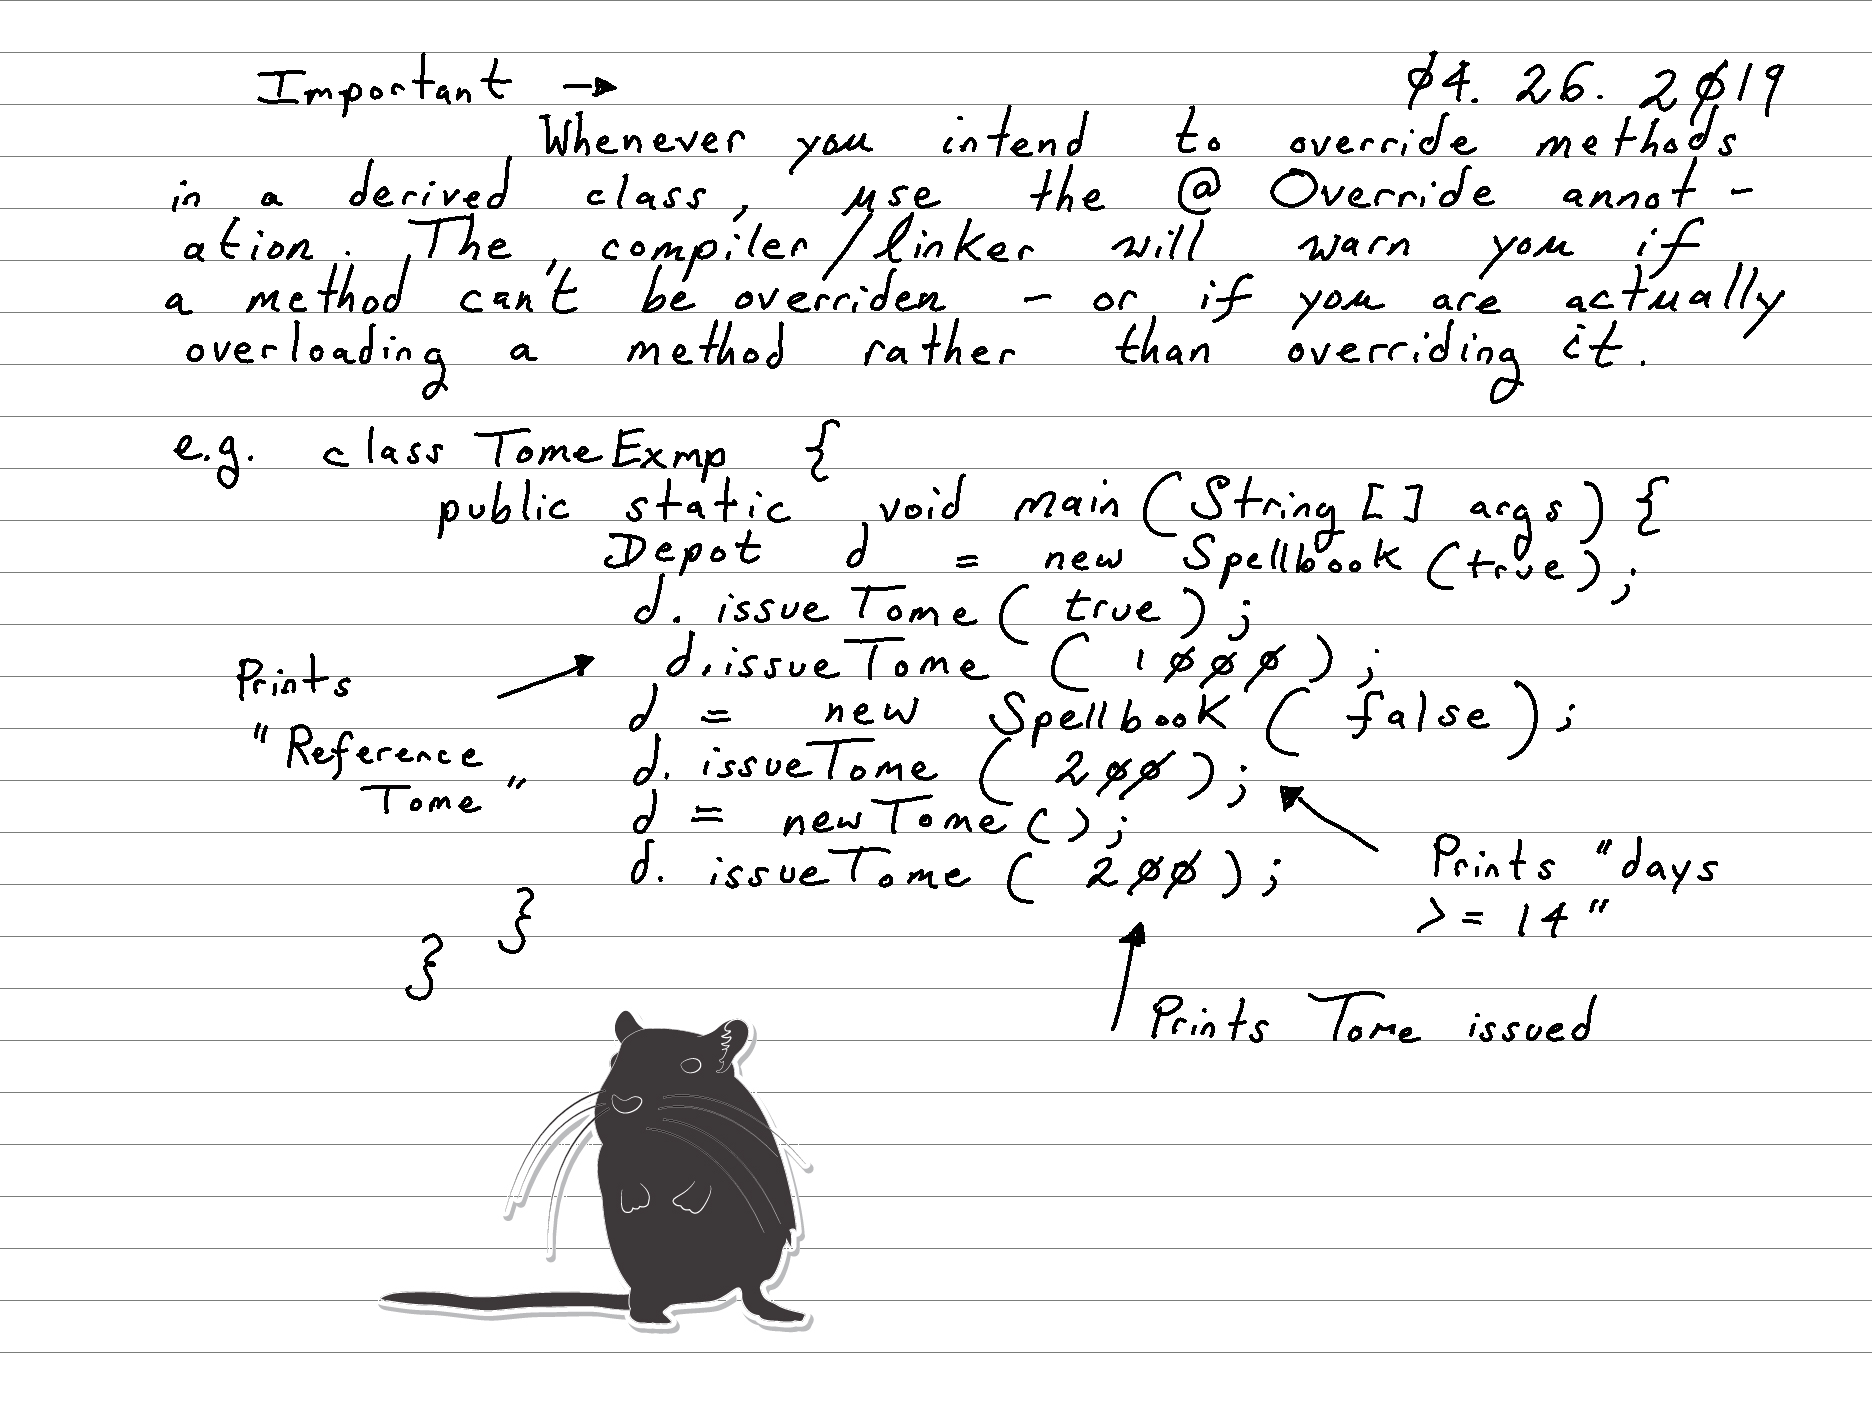 Important → 04. 26. 2019
Whenever you intend to override methods
in a derived class, use the @ Override annot -
ation. The compiler/linker will warn you if
a method can't be overriden - or if you are actually
overloading a method rather than overriding it.
e.g. class TomeExmp {
public static void main (String [] args) {
Depot d = new Spellbook (true);
d. issueTome ( true ) ;
d. issueTome ( 1000 ) ;
Prints
d = new Spellbook ( false ) ;
"Reference
d. issueTome ( 200 ) ;
Tome"
d = newTome ( ) ;
d. issueTome ( 200 ) ;
Prints "days
>= 14"
}
}
Prints Tome issued